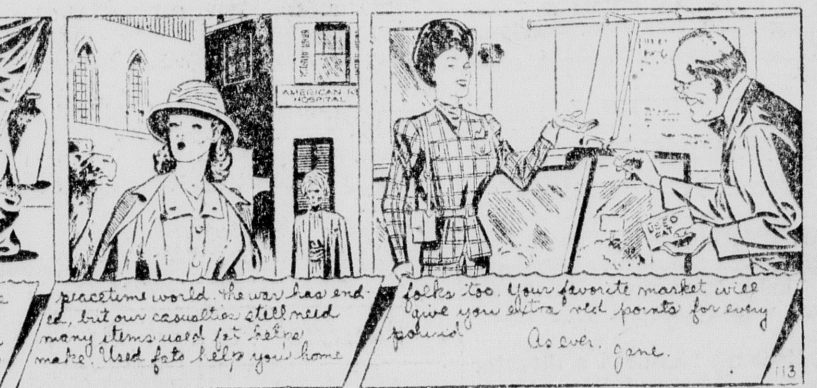 AMERICAN R
HOSPITAL
peacetime world. The war has end-
ed, but our casualties still need
many items used fat helps
make. Used fats help you home
USED
FATS
folks too. Your favorite market will
give you extra red points for every
pound
As ever,
Jane.
113